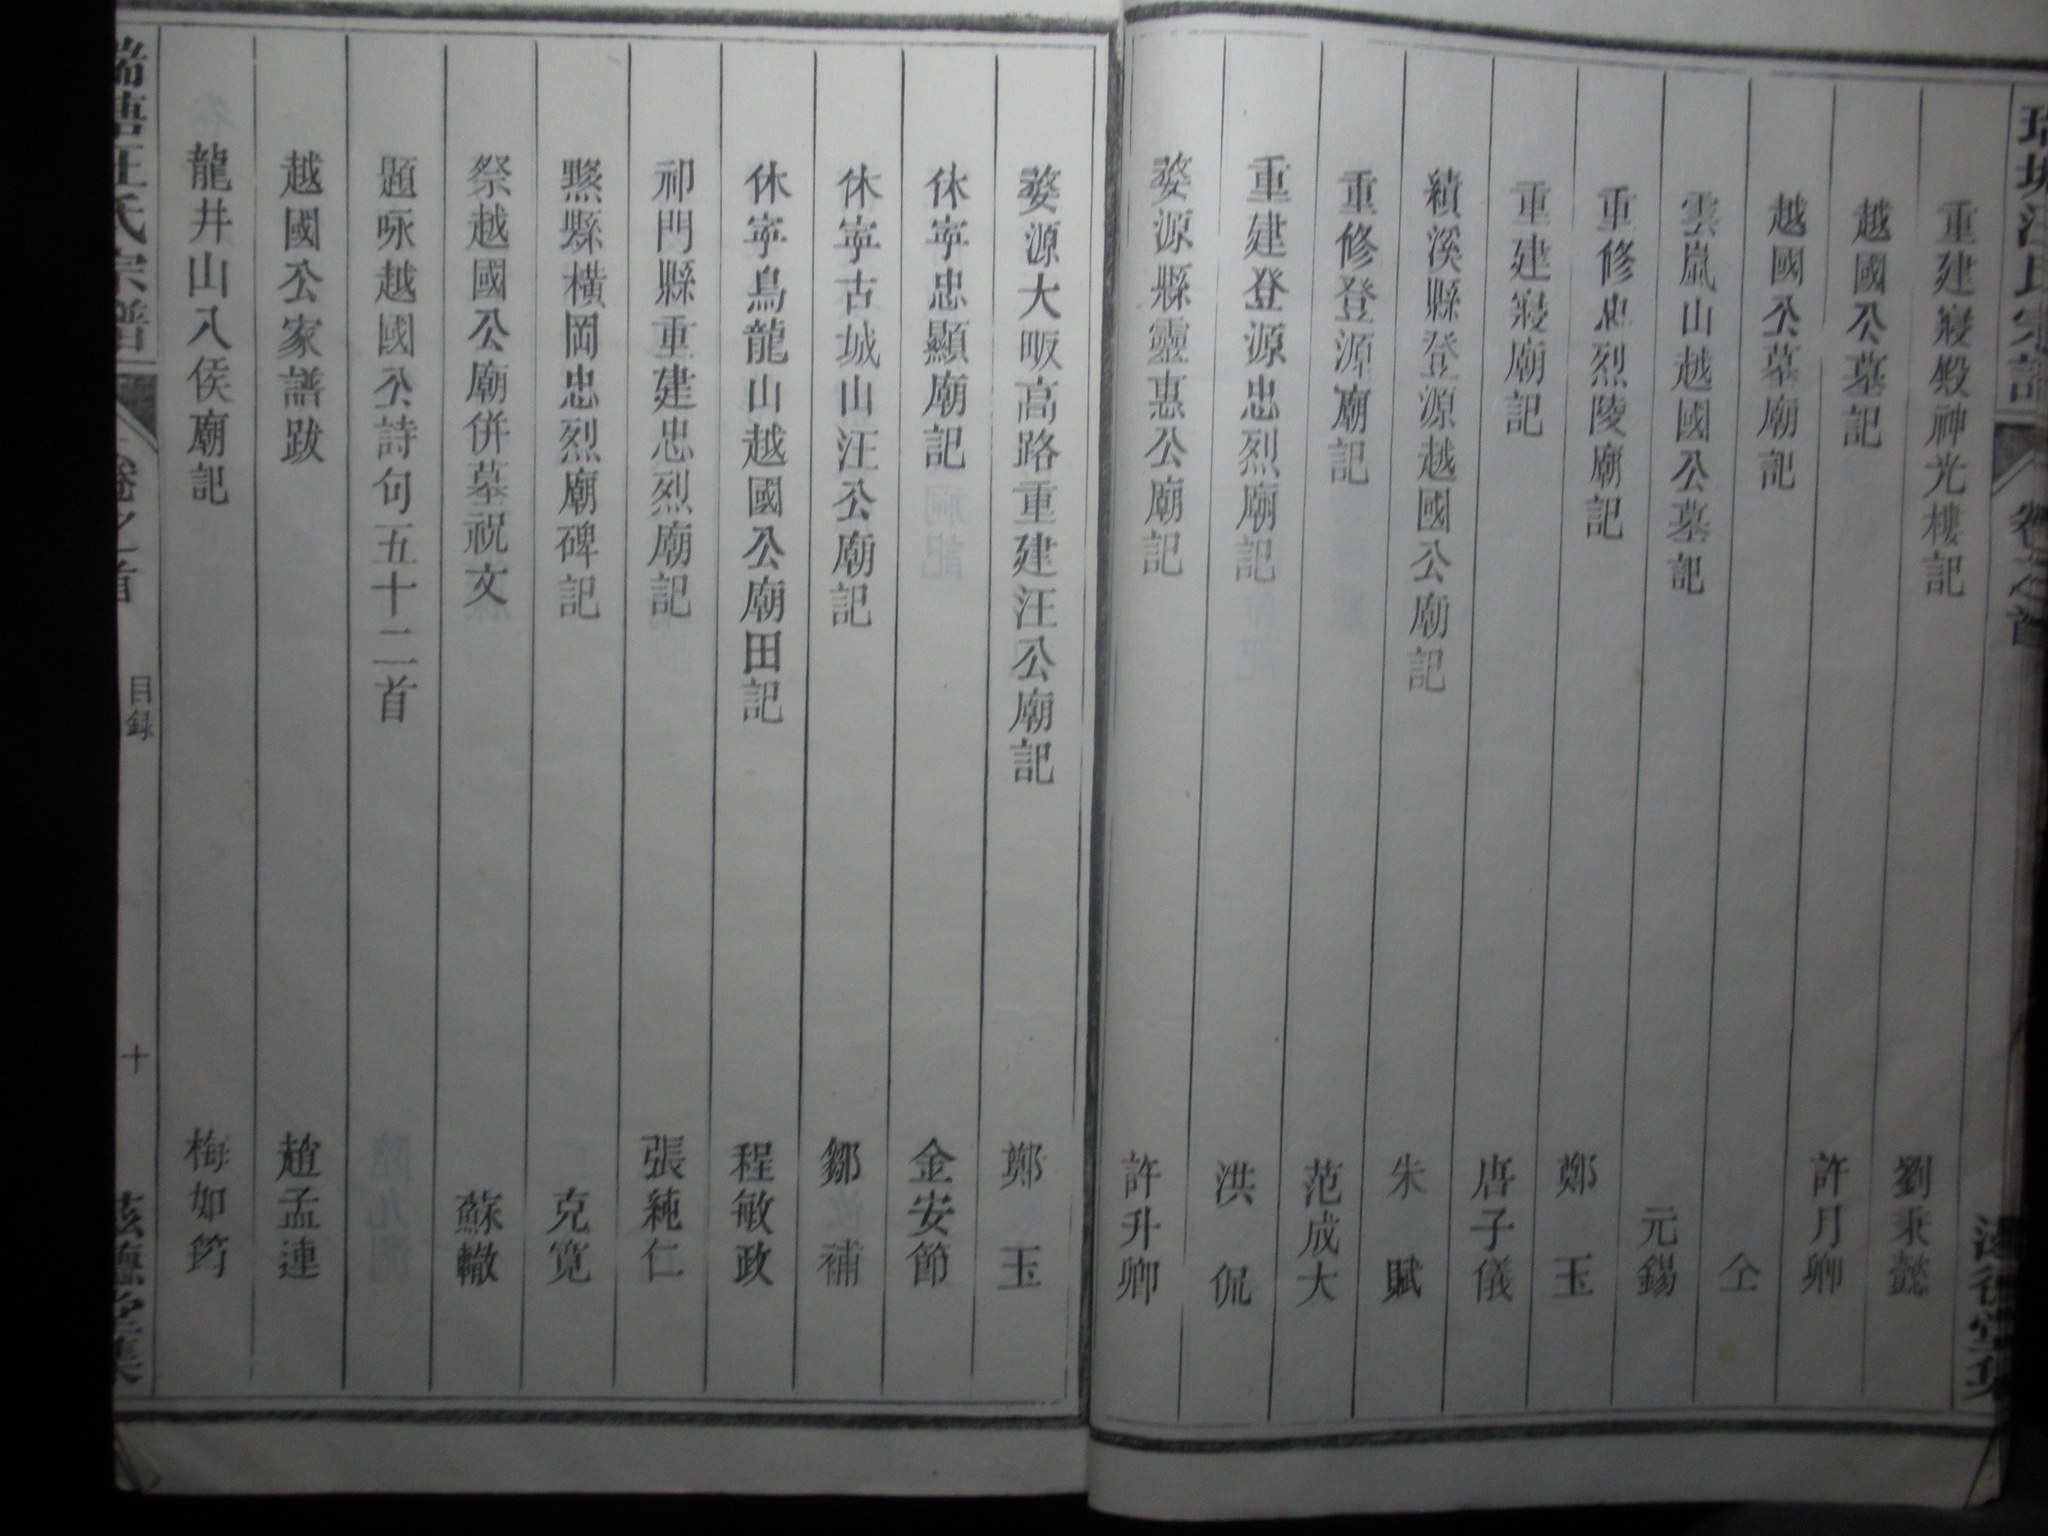 重建寢殿神光樓記 劉秉懿
越國公墓記 許月卿
越國公墓廟記 仝
雲嵐山越國公墓記 元錫
重修忠烈陵廟記 鄭 玉
重建寢廟記 唐子儀
績溪縣登源越國公廟記 朱 賦
重修登源廟記 范成大
重建登源忠烈廟記 洪 侃
婺源縣靈惠公廟記 許升卿
婺源大畈高路重建汪公廟記 鄭 玉
休寧忠顯廟記 金安節
休寧古城山汪公廟記 鄒 補
休寧鳥龍山越國公廟田記 程敏政
祁門縣重建忠烈廟記 張純仁
黟縣橫岡忠烈廟碑記 克寬
祭越國公廟併墓祝文 蘇轍
題咏越國公詩句五十二首
越國公家譜跋 趙孟連
龍井山八侯廟記 梅如筠
汪氏宗譜 卷之首 目録 十